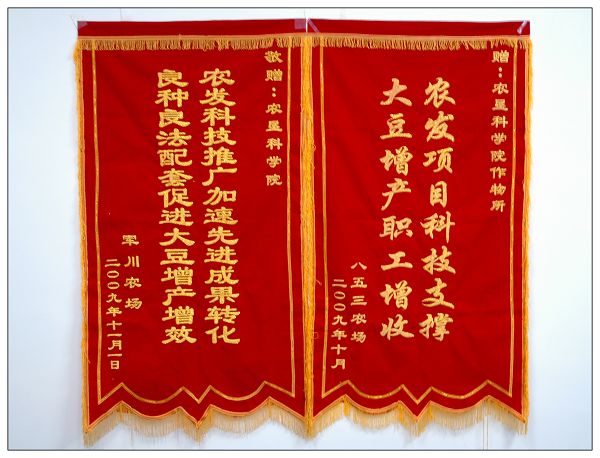 敬赠：农垦科学院
农发科技推广加速先进成果转化
良种良法配套促进大豆增产增效
军川农场
二00九年十一月一日
赠：农垦科学院作物所
农发项目科技支撑
大豆增产职工增收
八五三农场
二00九年十月